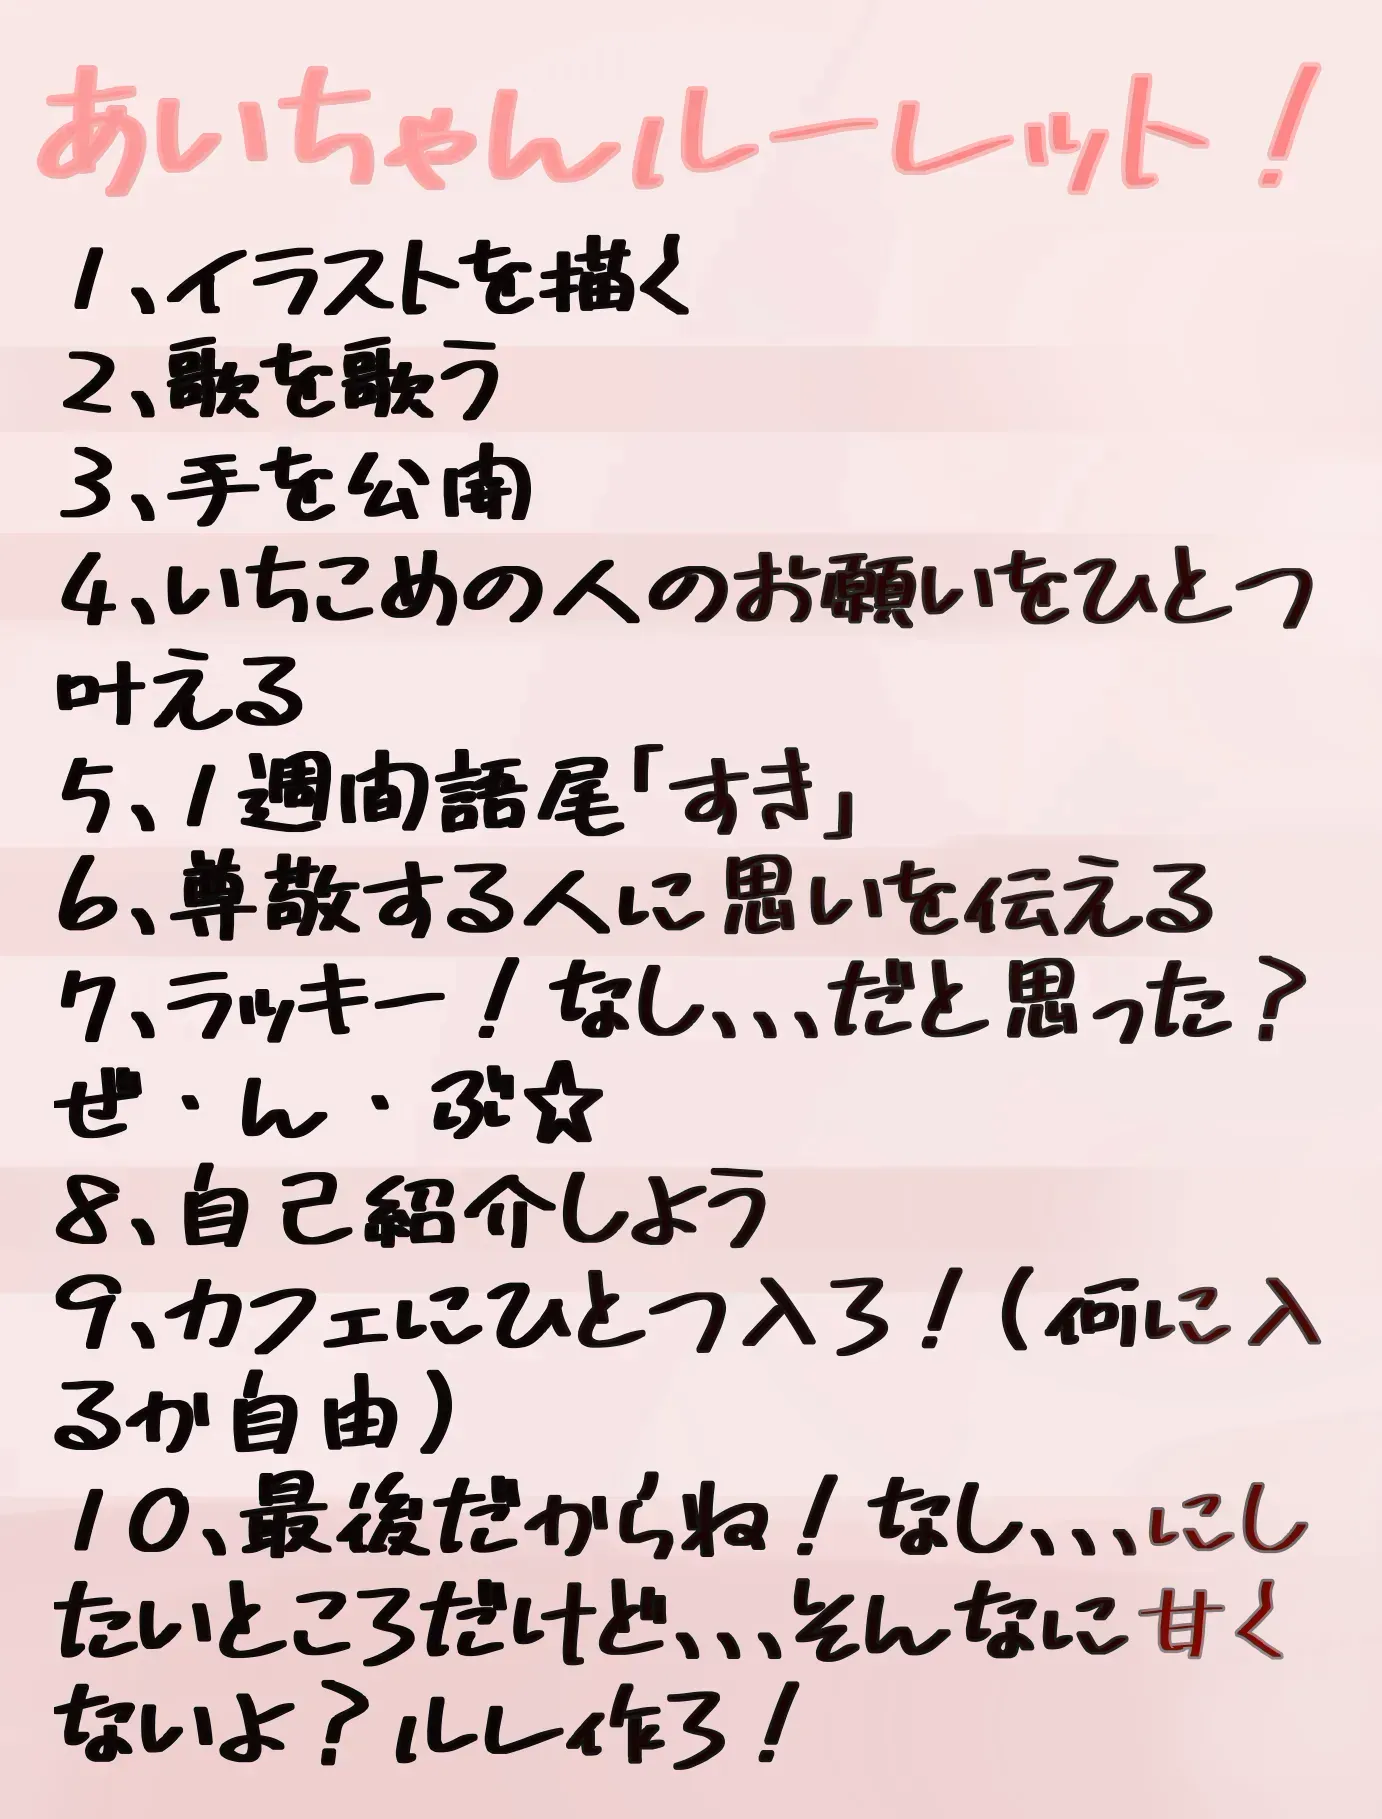 あいちゃんルーレット！
１、イラストを描く
２、歌を歌う
３、手を公開
４、いちこめの人のお願いをひとつ
叶える
５、１週間語尾「すき」
６、尊敬する人に思いを伝える
７、ラッキー！なし、、、だと思った？
ぜ・ん・ぶ☆
８、自己紹介しよう
９、カフェにひとつ入ろ！（何に入
るか自由）
１０、最後だからね！なし、、、にし
たいところだけど、、、そんなに甘く
ないよ？ルレ作ろ！